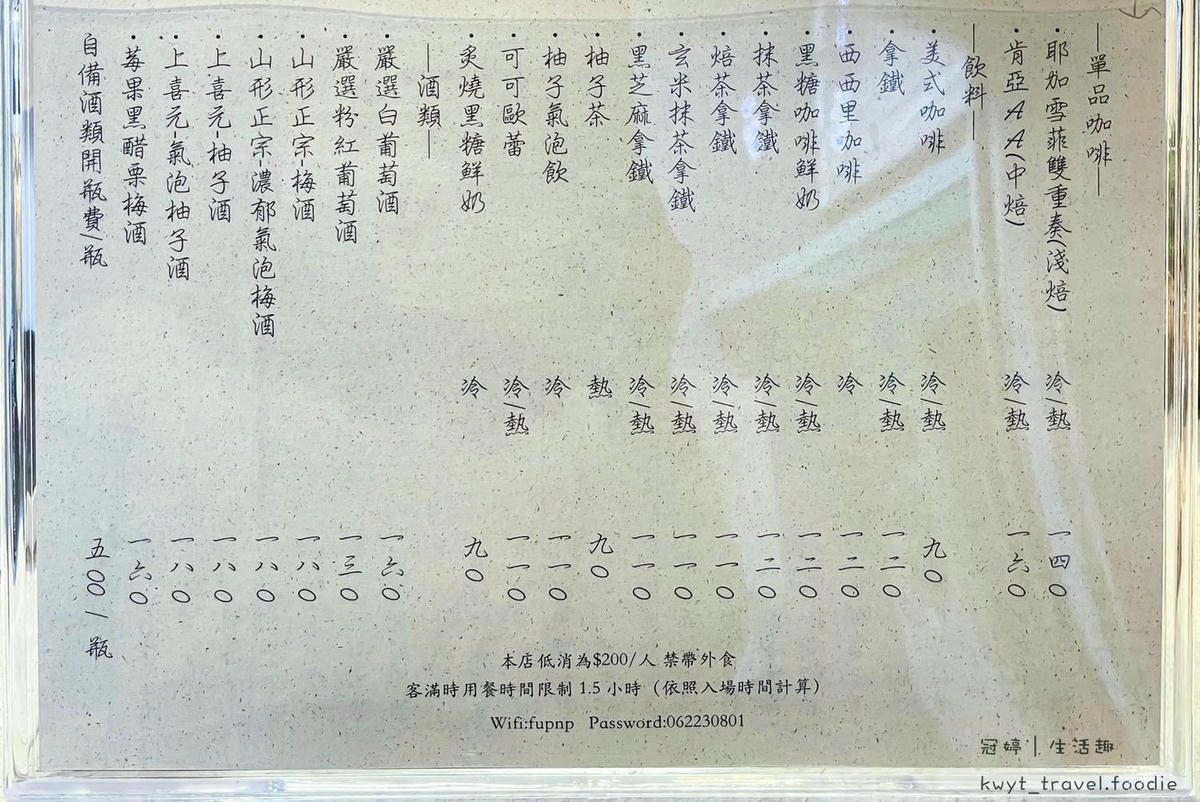 —單品咖啡—
・耶加雪菲雙重奏(淺焙) 冷/熱 一四〇
・肯亞AA(中焙) 冷/熱 一六〇
—飲料—
・美式咖啡 冷/熱 九〇
・拿鐵 冷/熱 一二〇
・西西里咖啡 冷 一二〇
・黑糖咖啡鮮奶 冷/熱 一二〇
・抹茶拿鐵 冷/熱 一二〇
・焙茶拿鐵 冷/熱 一一〇
・玄米抹茶拿鐵 冷/熱 一一〇
・黑芝麻拿鐵 冷/熱 一一〇
・柚子茶 熱 九〇
・柚子氣泡飲 冷 一一〇
・可可歐蕾 冷/熱 一一〇
・炙燒黑糖鮮奶 冷 九〇
—酒類—
・嚴選白葡萄酒 一六〇
・嚴選粉紅葡萄酒 一三〇
・山形正宗-梅酒 一八〇
・山形正宗-濃郁氣泡梅酒 一八〇
・上喜元-柚子酒 一八〇
・上喜元-氣泡柚子酒 一八〇
・莓果黑醋栗梅酒 一六〇
自備酒類開瓶費/瓶 五〇〇/瓶
本店低消為$200/人 禁帶外食
客滿時用餐時間限制 1.5 小時（依照入場時間計算）
Wifi:fupnp Password:062230801
冠婷｜生活趣
kwyt_travel.foodie